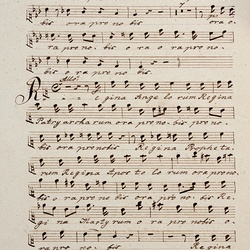 bis ora pro no bis p: ora o
ra pro no bis ora o ra pro no
bis o ra pro no bis.
All:o
Regina Ange lo rum Regina
Patry archarum ora pro no bis pro no
bis ora pro nobis Regina Propheta
rum Regina Aposto lo rum ora pro no
bis o ra pro no bis ora pro no bis Re
gi na Martyrum o ra pro nobis o
ra pro no bis Regina